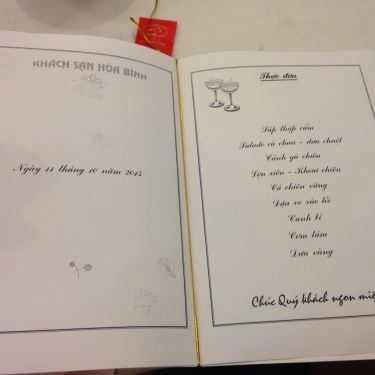 KHÁCH SẠN HÒA BÌNH
Ngày 11 tháng 10 năm 2014
Thực đơn
Súp thập cẩm
Salade cà chua - dưa chuột
Cánh gà chiên
Lợn xiên - Khoai chiên
Cá chiên vừng
Đậu ve xào tỏi
Canh bí
Cơm tám
Dưa vàng
Chúc Quý khách ngon